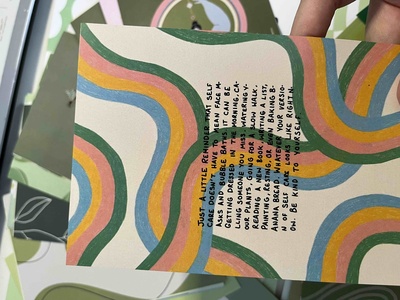 JUST A LITTLE REMINDER THAT SELF
CARE DOESN'T HAVE TO MEAN FACE M-
ASKS AND BUBBLE BATHS; IT CAN BE
GETTING DRESSED IN THE MORNING, CA-
LLING SOMEONE YOU MISS, WATERING Y-
OUR PLANTS, GOING FOR A SLOW WALK,
READING A NEW BOOK, WRITING A LIST,
PAINTING, RESTING, OR EVEN BAKING B-
ANANA BREAD. WHATEVER YOUR VERSIO-
N OF SELF CARE LOOKS LIKE RIGHT N-
OW. BE KIND TO YOURSELF